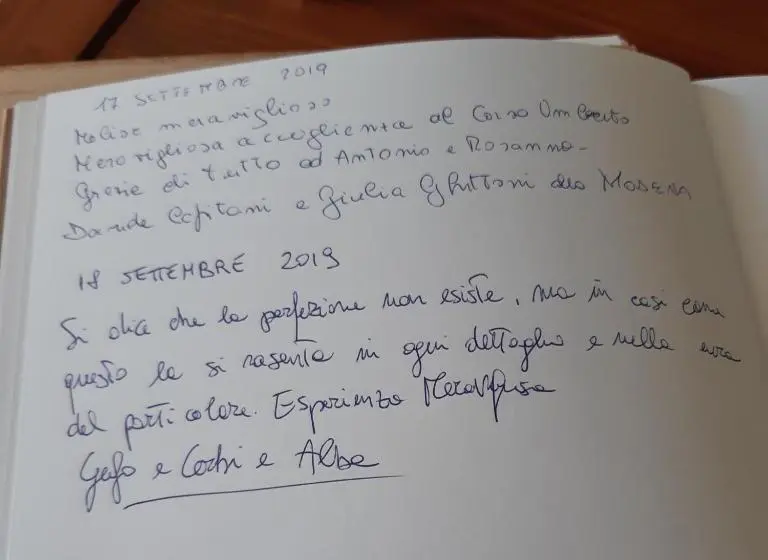 17 SETTEMBRE 2019
Molise meraviglioso
Meravigliosa accoglienza al Corso Umberto
Grazie di tutto ad Antonio e Rosanna -
Davide Capitani e Giulia da MODENA
18 SETTEMBRE 2019
Si dice che la perfezione non esiste, ma in casi come
questo la si rasenta in ogni dettaglio e nella cura
del particolare. Esperienza Meravigliosa
e e Alba